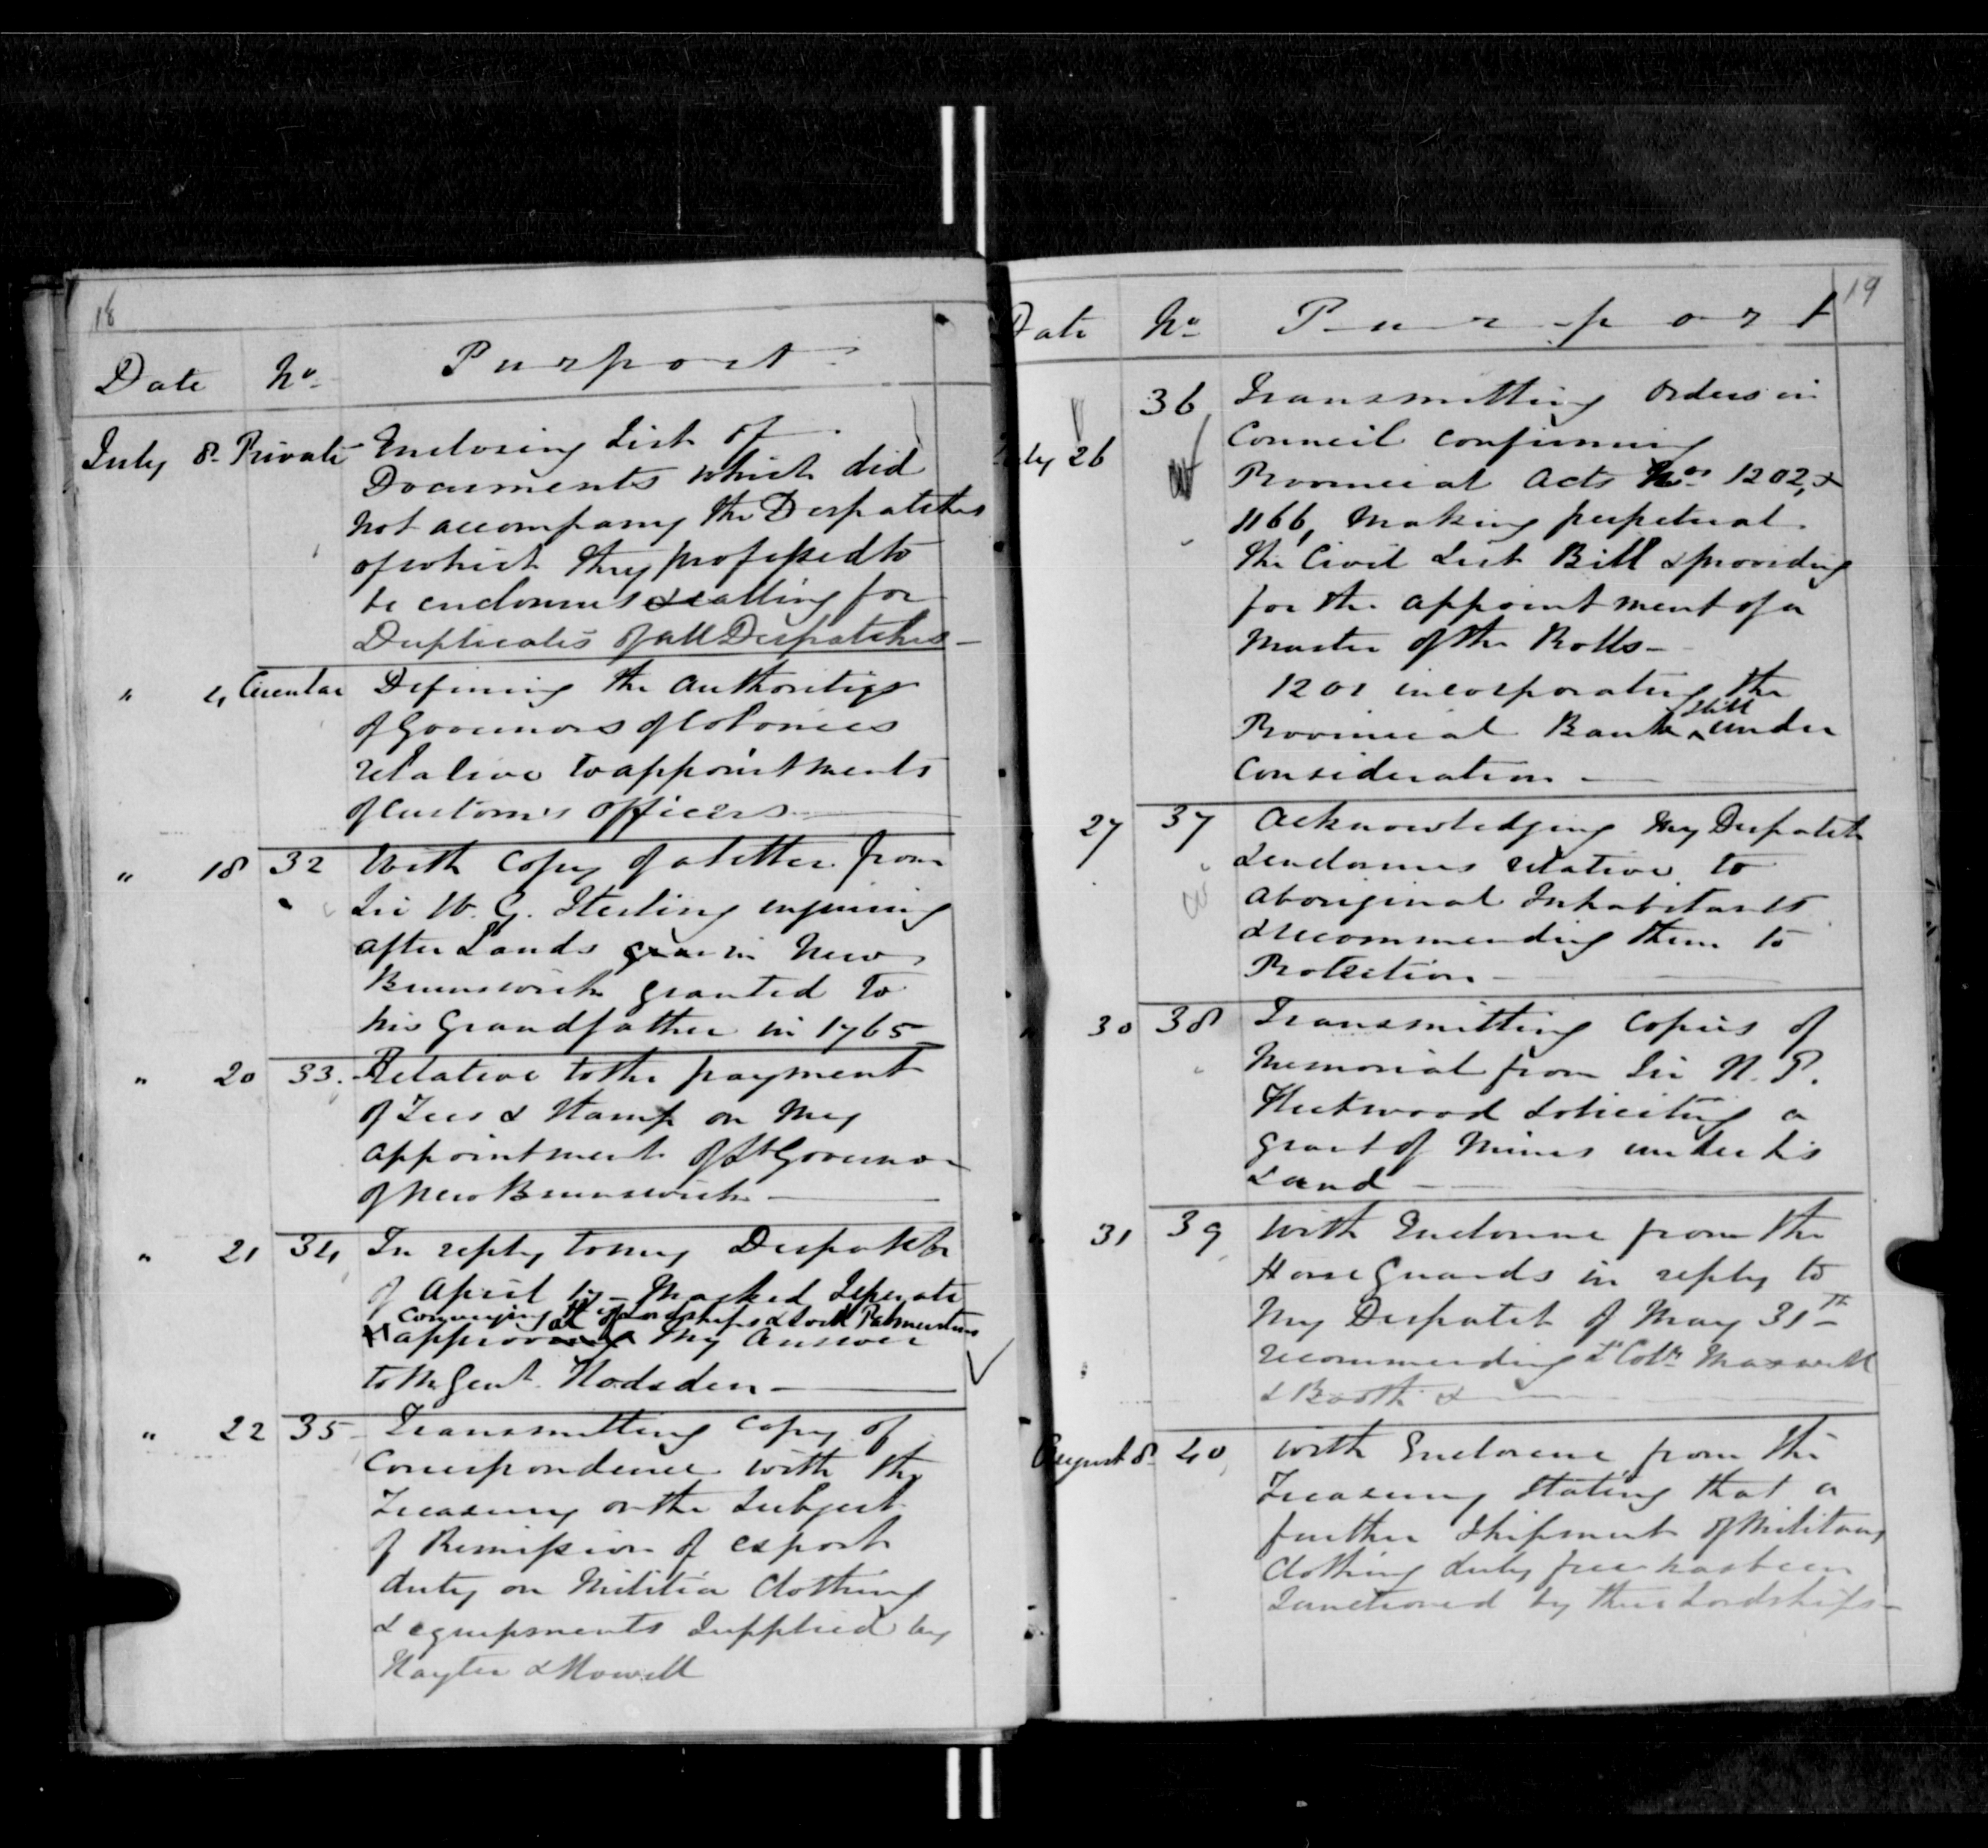 18
Date No. Purport
July 8. Private Enclosing List of
Documents which did
not accompany the Despatches
of which they professed to
be enclosures & calling for
Duplicates of all Despatches —
" " Circular Defining the authorities
of Governors of Colonies
relative to appointments
of Customs officers —
" 18 32 With Copy of a letter from
Sir W. G. Sterling enquiring
after Lands in New
Brunswick granted to
his Grandfather in 1765
" 20 33. Relative to the payment
of Fees & Stamp on my
appointment of Lt Governor
of New Brunswick —
" 21 34 In reply to my Despatch
of April 17 — Marked Seperate
conveying His Lordships & Lord Palmerstons
approval my answer
to Mr Gent. Hodsden —
" 22 35 Transmitting Copy of
Correspondence with the
Treasury on the Subject
of Remission of export
duty on Militia Clothing
& equipments Supplied by
Hayter & Howell
19
Date No. Purport
July 26 36 Transmitting Orders in
Council confirming
Provincial Acts Nos. 1202, &
1166, Making perpetual
the Civil List Bill & providing
for the appointment of a
Master of the Rolls —
1201 incorporating the
Provincial Bank still under
Consideration —
27 37 Acknowledging my Despatch
& enclosures relative to
Aboriginal Inhabitants
& recommending them to
Protection —
30 38 Transmitting Copies of
Memorial from Sir
Fleetwood Soliciting a
grant of Mines under his
Land —
31 39 With Enclosure from the
Horse Guards in reply to
My Despatch of May 31th
recommending Lt Cols Maxwell
& Booth &
August 8. 40 With Enclosure from the
Treasury Stating that a
further Shipment of Military
Clothing duty free has been
Sanctioned by their Lordships —